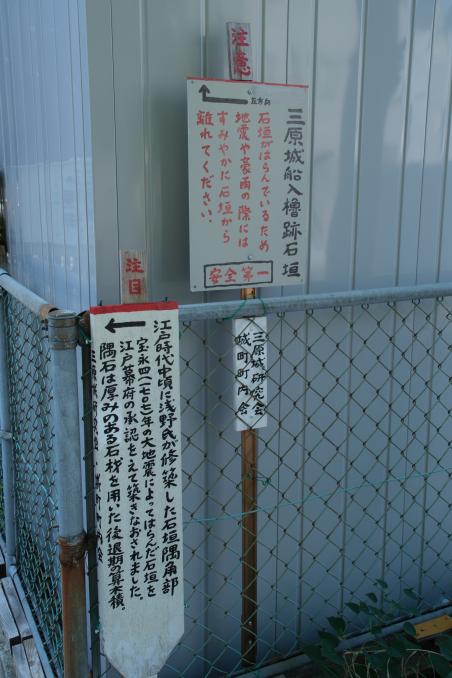 注意
左方向
三原城船入櫓跡石垣
石垣がはらんでいるため
地震や豪雨の際には
すみやかに石垣から
離れてください。
安全第一
三原城研究会
城町町内会
注目
江戸時代中頃に浅野氏が修築した石垣隅角部
宝永四(一七〇七)年の大地震によってはらんだ石垣を
江戸幕府の承認をえて築きなおされました。
隅石は厚みのある石材を用いた後退期の算木積